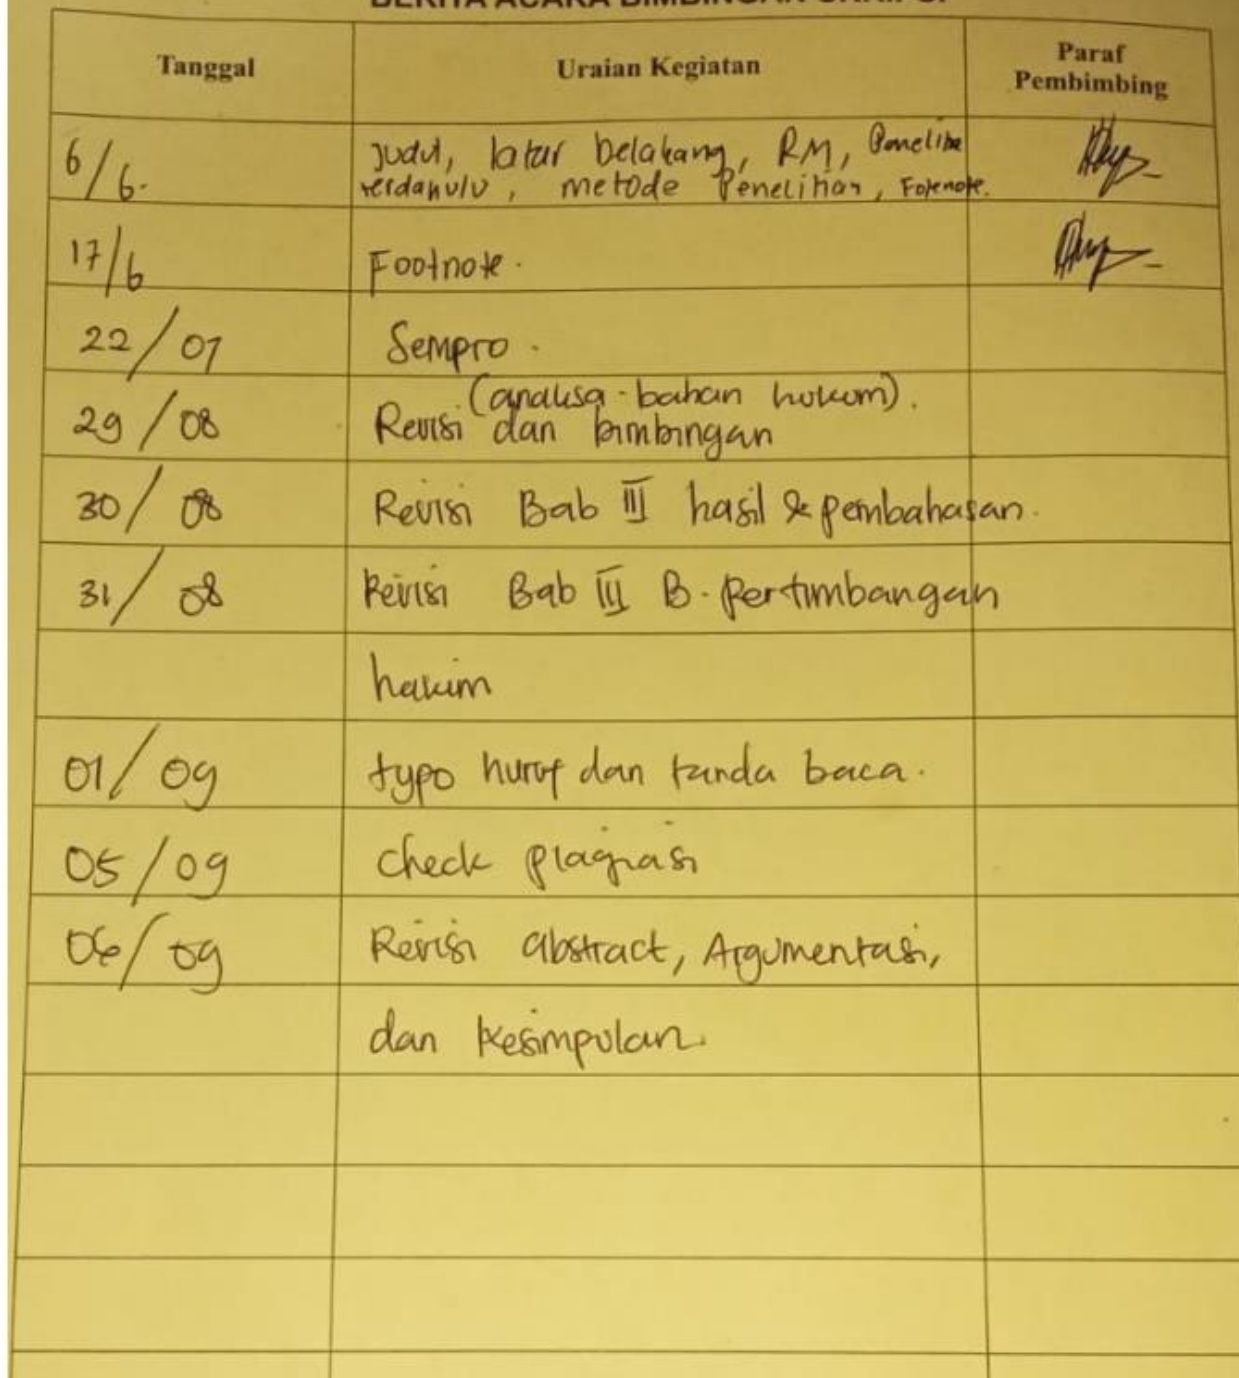 BERITA ACARA BIMBINGAN SKRIPSI
Tanggal
Uraian Kegiatan
Paraf
Pembimbing
6/6.
Judul, latar belakang, RM, Penelitia
terdahulu, metode Penelitian, Footnote.
17/6
Footnote.
22/07
Sempro.
29/08
(analisa-bahan hukum).
Revisi dan bimbingan
30/08
Revisi Bab III hasil & pembahasan.
31/08
Revisi Bab III B. Pertimbangan
hakim
01/09
typo huruf dan tanda baca.
05/09
Check plagiasi
06/09
Revisi abstract, Argumentasi,
dan Kesimpulan.